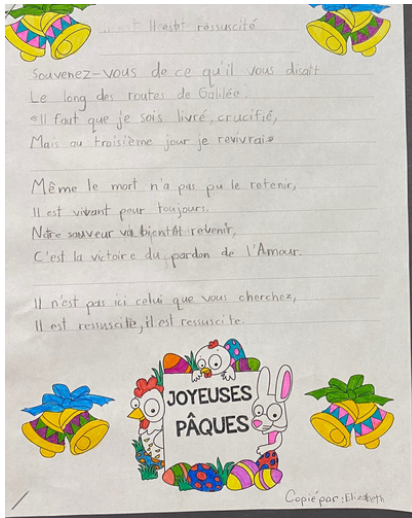 Il est ressuscité
Souvenez-vous de ce qu'il vous disait
Le long des routes de Galilée:
«Il faut que je sois livré, crucifié,
Mais au troisième jour je revivrai»
Même le mort n'a pas pu le retenir,
Il est vivant pour toujours.
Notre sauveur va bientôt revenir,
C'est la victoire du pardon de l'Amour.
Il n'est pas ici celui que vous cherchez,
Il est ressuscité, il est ressuscité.
JOYEUSES
PÂQUES
Copié par: Elizabeth